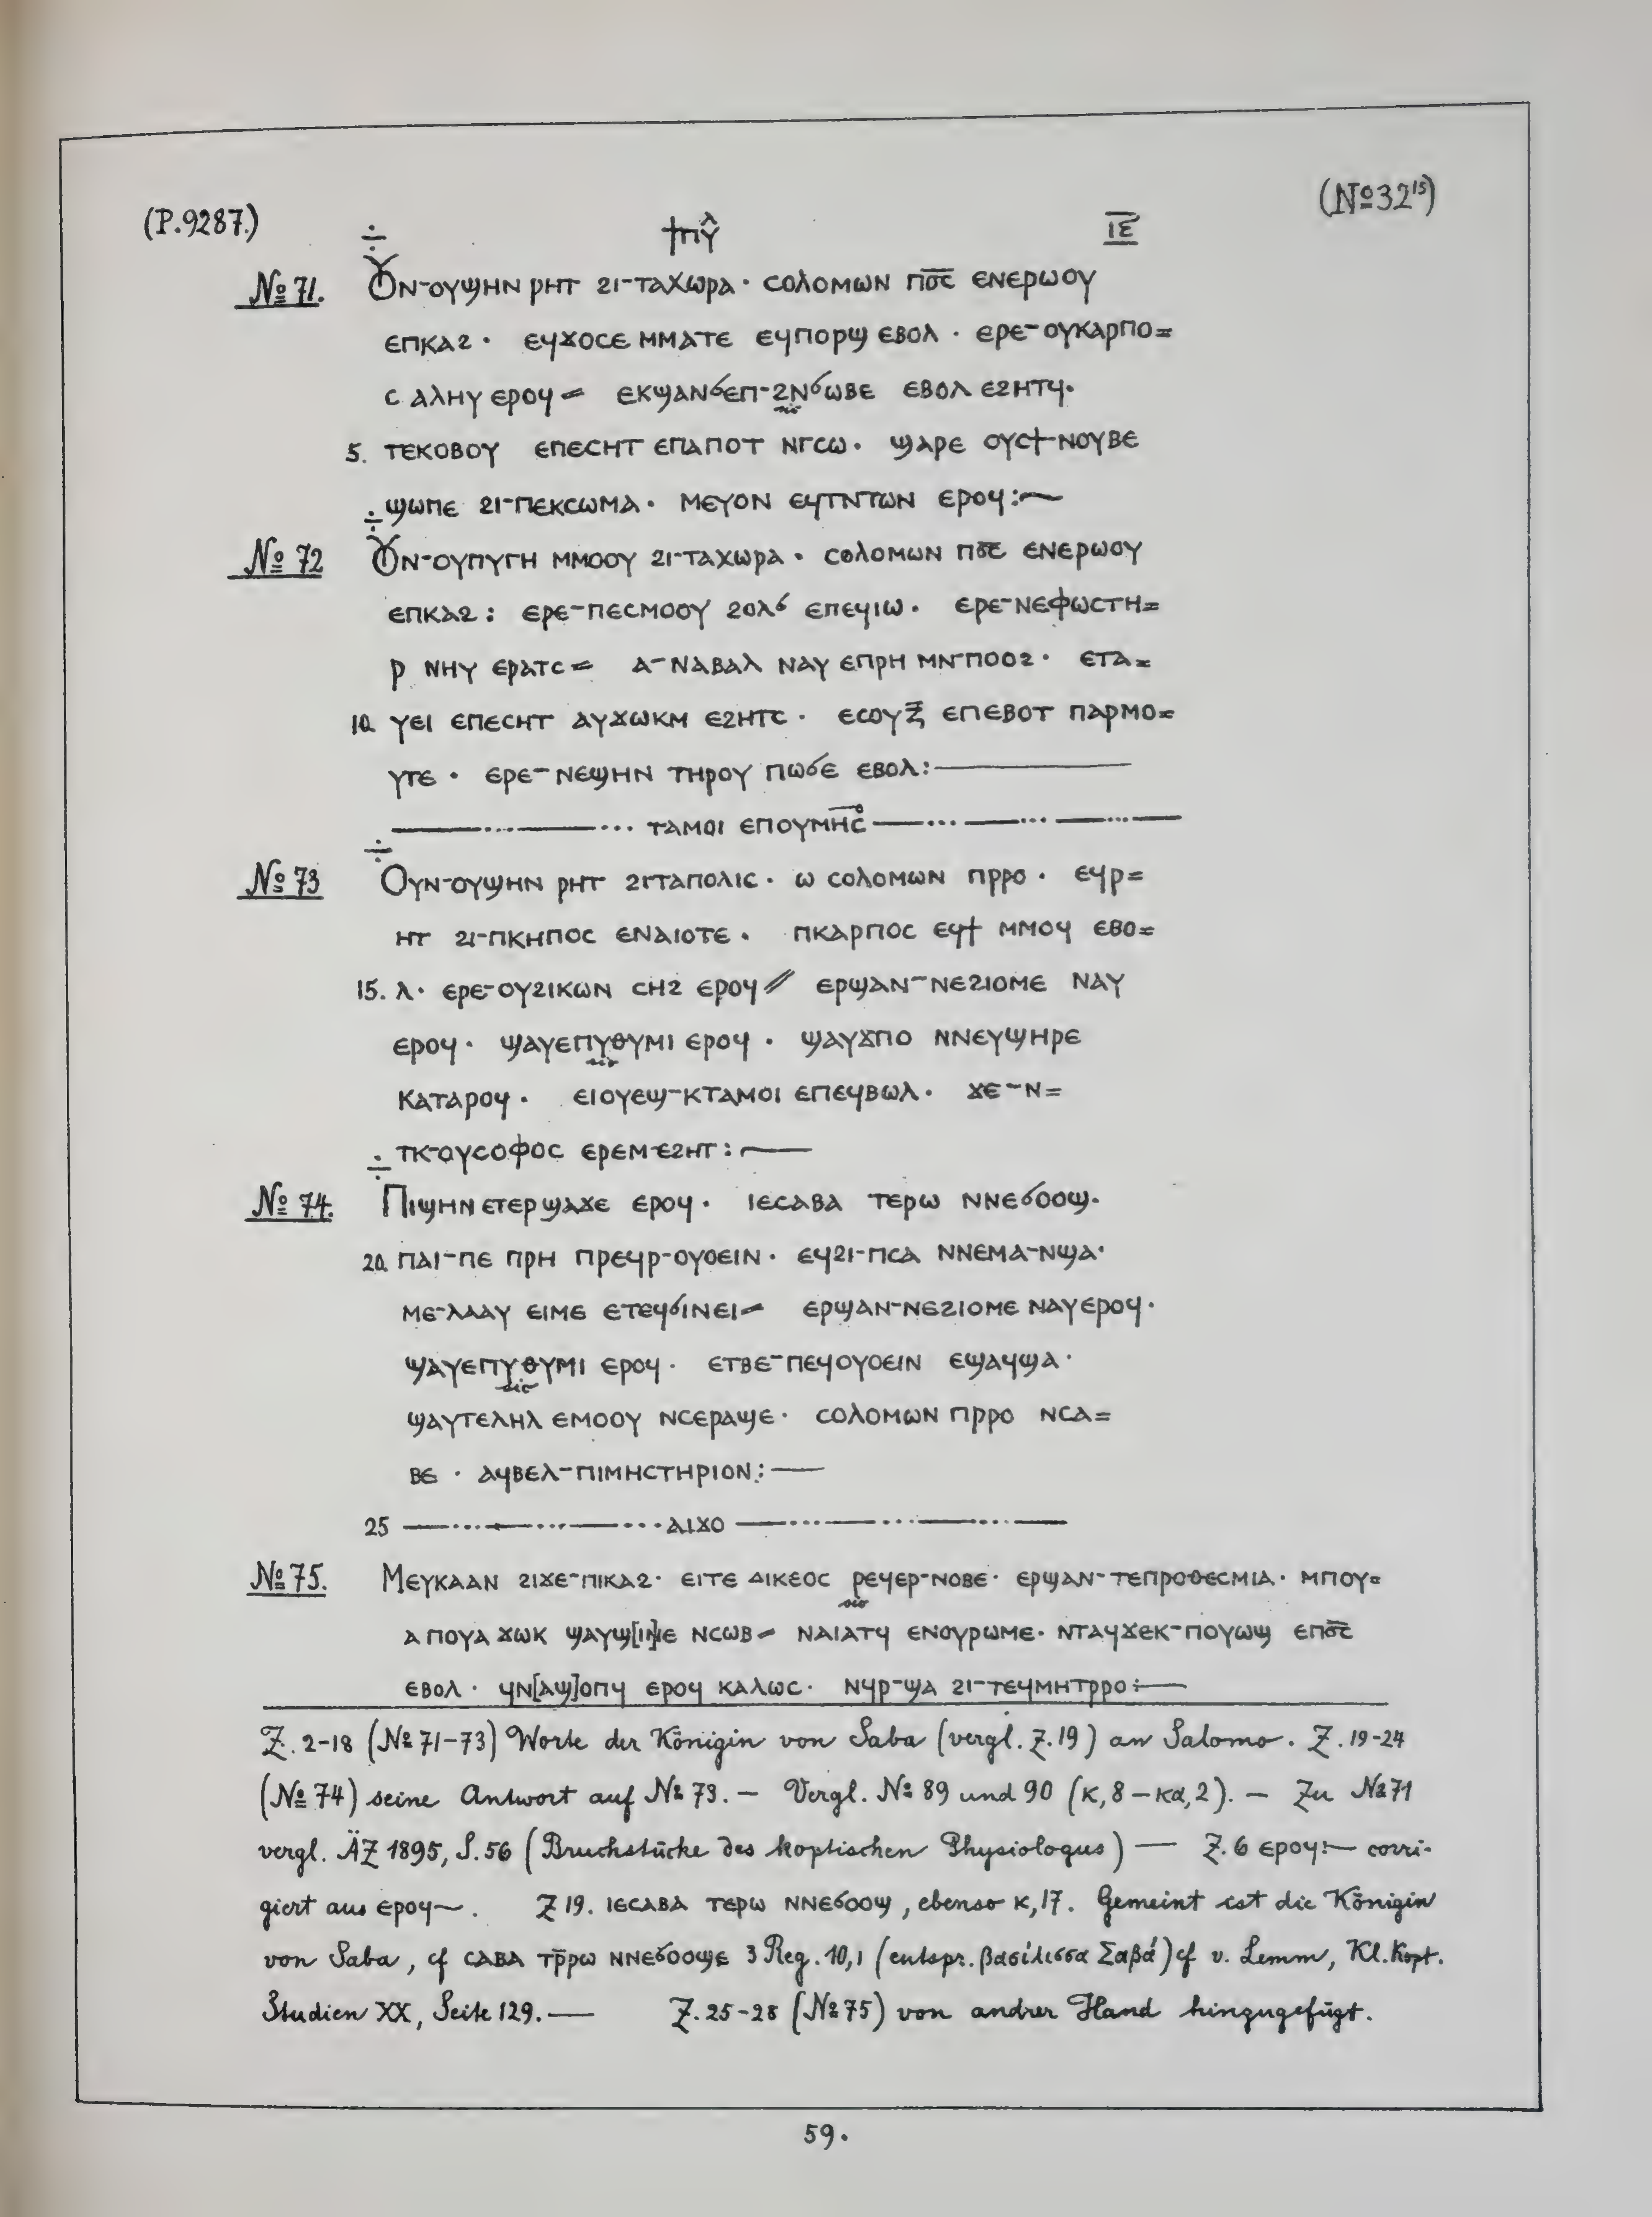 (P.9287.) (№32¹⁵)
÷ ϯⲡⲩ̂ ⲓ̅ⲉ̅
№ 71. Ⲟⲩⲛ-ⲟⲩϣⲏⲛ ⲣⲏⲧ ϩⲓ-ⲧⲁⲭⲱⲣⲁ · ⲥⲟⲗⲟⲙⲱⲛ ⲡⲟ̅ⲥ̅ ⲉⲛⲉⲣⲱⲟⲩ
ⲉⲡⲕⲁϩ · ⲉϥϫⲟⲥⲉ ⲙⲙⲁⲧⲉ ⲉϥⲡⲟⲣϣ ⲉⲃⲟⲗ · ⲉⲣⲉ-ⲟⲩⲕⲁⲣⲡⲟ=
ⲥ ⲁⲗⲏⲩ ⲉⲣⲟϥ = ⲉⲕϣⲁⲛϭⲉⲡ-ϩⲛϭⲱⲃⲉ ⲉⲃⲟⲗ ⲉϩⲏⲧϥ·
sic
5. ⲧⲉⲕⲟⲃⲟⲩ ⲉⲡⲉⲥⲏⲧ ⲉⲡⲁⲡⲟⲧ ⲛⲅⲥⲱ · ϣⲁⲣⲉ ⲟⲩⲥϯ-ⲛⲟⲩⲃⲉ
÷ ϣⲱⲡⲉ ϩⲓ-ⲡⲉⲕⲥⲱⲙⲁ · ⲙⲉⲩⲟⲛ ⲉϥⲧⲛⲧⲱⲛ ⲉⲣⲟϥ :~
№ 72 Ⲟⲩⲛ-ⲟⲩⲡⲩⲅⲏ ⲙⲙⲟⲟⲩ ϩⲓ-ⲧⲁⲭⲱⲣⲁ · ⲥⲟⲗⲟⲙⲱⲛ ⲡⲟ̅ⲥ̅ ⲉⲛⲉⲣⲱⲟⲩ
ⲉⲡⲕⲁϩ : ⲉⲣⲉ-ⲡⲉⲥⲙⲟⲟⲩ ϩⲟⲗϭ ⲉⲡⲉϥⲓⲱ · ⲉⲣⲉ-ⲛⲉⲫⲱⲥⲧⲏ=
ⲣ ⲛⲏⲩ ⲉⲣⲁⲧⲥ = ⲁ-ⲛⲁⲃⲁⲗ ⲛⲁⲩ ⲉⲡⲣⲏ ⲙⲛ-ⲡⲟⲟϩ · ⲉⲧⲁ=
10. ⲩⲉⲓ ⲉⲡⲉⲥⲏⲧ ⲁⲩϫⲱⲕⲙ ⲉϩⲏⲧⲥ · ⲉⲥⲟⲩⲝ̅ ⲉⲡⲉⲃⲟⲧ ⲡⲁⲣⲙⲟ=
ⲩⲧⲉ · ⲉⲣⲉ-ⲛⲉϣⲏⲛ ⲧⲏⲣⲟⲩ ⲡⲱϭⲉ ⲉⲃⲟⲗ :—
—···—··· ⲧⲁⲙⲟⲓ ⲉⲡⲟⲩⲙⲏⲥ̊ —···—···—···—
÷
№ 73 Ⲟⲩⲛ-ⲟⲩϣⲏⲛ ⲣⲏⲧ ϩⲓⲧⲁⲡⲟⲗⲓⲥ · ⲱ ⲥⲟⲗⲟⲙⲱⲛ ⲡⲣⲣⲟ · ⲉϥⲣ=
ⲏⲧ ϩⲓ-ⲡⲕⲏⲡⲟⲥ ⲉⲛⲁⲓⲟⲧⲉ · ⲡⲕⲁⲣⲡⲟⲥ ⲉϥϯ ⲙⲙⲟϥ ⲉⲃⲟ=
15. ⲗ · ⲉⲣⲉ-ⲟⲩϩⲓⲕⲱⲛ ⲥⲏϩ ⲉⲣⲟϥ // ⲉⲣϣⲁⲛ-ⲛⲉϩⲓⲟⲙⲉ ⲛⲁⲩ
ⲉⲣⲟϥ · ϣⲁⲩⲉⲡⲩⲑⲩⲙⲓ ⲉⲣⲟϥ · ϣⲁⲩϫⲡⲟ ⲛⲛⲉⲩϣⲏⲣⲉ
sic
ⲕⲁⲧⲁⲣⲟϥ · ⲉⲓⲟⲩⲉϣ-ⲕⲧⲁⲙⲟⲓ ⲉⲡⲉϥⲃⲱⲗ · ϫⲉ-ⲛ=
÷ ⲧⲕ-ⲟⲩⲥⲟⲫⲟⲥ ⲉⲣⲉⲙ-ⲉϩⲏⲧ :—
№ 74. Ⲡⲓϣⲏⲛ ⲉⲧⲉⲣϣⲁϫⲉ ⲉⲣⲟϥ · ⲓⲉⲥⲁⲃⲁ ⲧⲉⲣⲱ ⲛⲛⲉϭⲟⲟϣ·
20. ⲡⲁⲓ-ⲡⲉ ⲡⲣⲏ ⲡⲣⲉϥⲣ-ⲟⲩⲟⲉⲓⲛ · ⲉϥϩⲓ-ⲡⲥⲁ ⲛⲛⲉⲙⲁ-ⲛϣⲁ·
ⲙⲉ-ⲗⲁⲁⲩ ⲉⲓⲙⲉ ⲉⲧⲉϥϭⲓⲛⲉⲓ = ⲉⲣϣⲁⲛ-ⲛⲉϩⲓⲟⲙⲉ ⲛⲁⲩ ⲉⲣⲟϥ ·
ϣⲁⲩⲉⲡⲩⲑⲩⲙⲓ ⲉⲣⲟϥ · ⲉⲧⲃⲉ-ⲡⲉϥⲟⲩⲟⲉⲓⲛ ⲉϣⲁϥϣⲁ ·
sic
ϣⲁⲩⲧⲉⲗⲏⲗ ⲉⲙⲟⲟⲩ ⲛⲥⲉⲣⲁϣⲉ · ⲥⲟⲗⲟⲙⲱⲛ ⲡⲣⲣⲟ ⲛⲥⲁ=
ⲃⲉ · ⲁϥⲃⲉⲗ-ⲡⲓⲙⲏⲥⲧⲏⲣⲓⲟⲛ :—
25 —···—···—··· ⲁⲓⲭⲟ —···—···—
№ 75. Ⲙⲉⲩⲕⲁⲁⲛ ϩⲓϫⲉ-ⲡⲓⲕⲁϩ · ⲉⲓⲧⲉ ⲇⲓⲕⲉⲟⲥ ⲣⲉϥⲉⲣ-ⲛⲟⲃⲉ · ⲉⲣϣⲁⲛ-ⲧⲉⲡⲣⲟⲑⲉⲥⲙⲓⲁ · ⲙⲡⲟⲩ=
sic
ⲁ ⲡⲟⲩⲁ ϫⲱⲕ ϣⲁⲩϣ[ⲓⲛ]ⲉ ⲛⲥⲱⲃ = ⲛⲁⲓⲁⲧϥ ⲉⲛⲟⲩⲣⲱⲙⲉ · ⲛⲧⲁϥϫⲉⲕ-ⲡⲟⲩⲱϣ ⲉⲡⲟ̅ⲥ̅
ⲉⲃⲟⲗ · ϥⲛ[ⲁϣ]ⲟⲡϥ ⲉⲣⲟϥ ⲕⲁⲗⲱⲥ · ⲛϥⲣ-ϣⲁ ϩⲓ-ⲧⲉϥⲙⲏⲧⲣⲣⲟ :—
Z. 2-18 (№ 71-73) Worte der Königin von Saba (vergl. Z. 19) an Salomo. Z. 19-24
(№ 74) seine Antwort auf № 73. — Vergl. № 89 und 90 (κ, 8 – κα, 2). — Zu № 71
vergl. ÄZ 1895, S. 56 (Bruchstücke des koptischen Physiologus) — Z. 6 ⲉⲣⲟϥ:— corri-
giert aus ⲉⲣⲟϥ~. Z 19. ⲓⲉⲥⲁⲃⲁ ⲧⲉⲣⲱ ⲛⲛⲉϭⲟⲟϣ, ebenso κ, 17. Gemeint ist die Königin
von Saba, cf ⲥⲁⲃⲁ ⲧⲣ̅ⲣⲱ ⲛⲛⲉϭⲟⲟϣⲉ 3 Reg. 10,1 (entspr. βασίλισσα Σαβά) cf v. Lemm, Kl. Kopt.
Studien XX, Seite 129. — Z. 25-28 (№ 75) von andrer Hand hinzugefügt.
59.